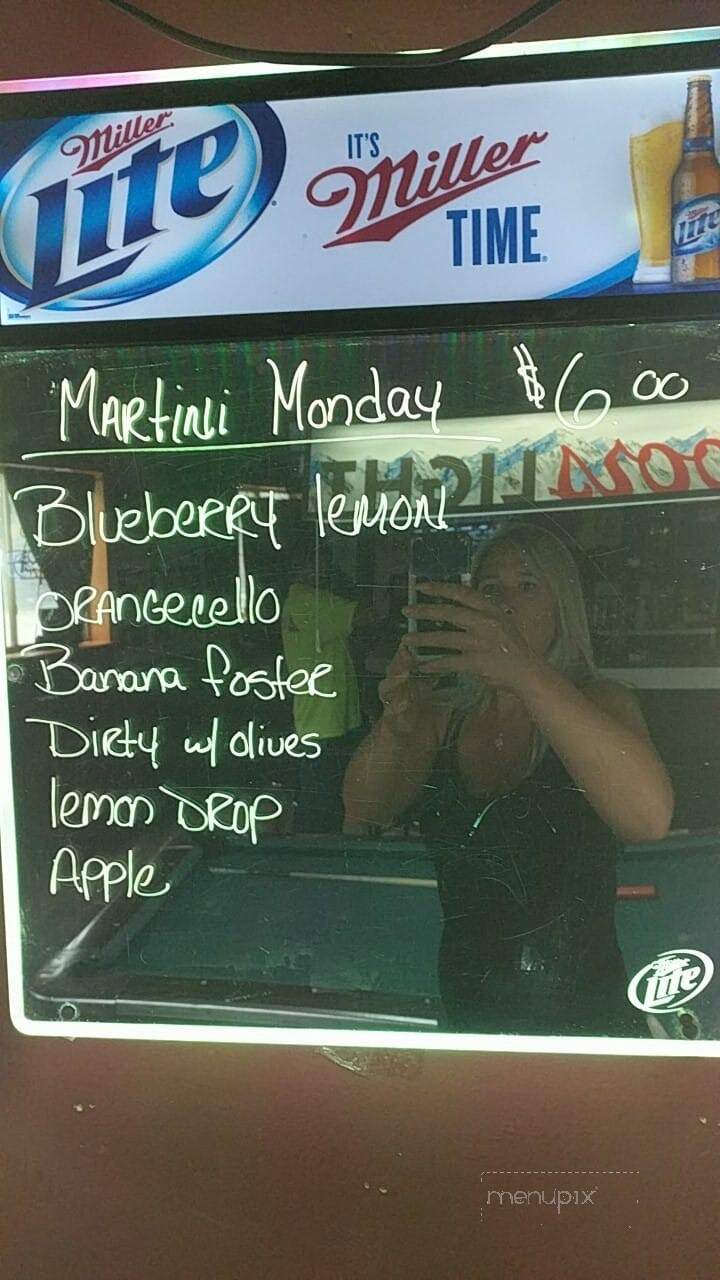 Miller Lite
IT'S Miller TIME
Martini Monday $6.00
Blueberry lemon
ORANGecello
Banana foster
Dirty w/ olives
lemon DROP
Apple
COORS LIGHT
Lite
menupix